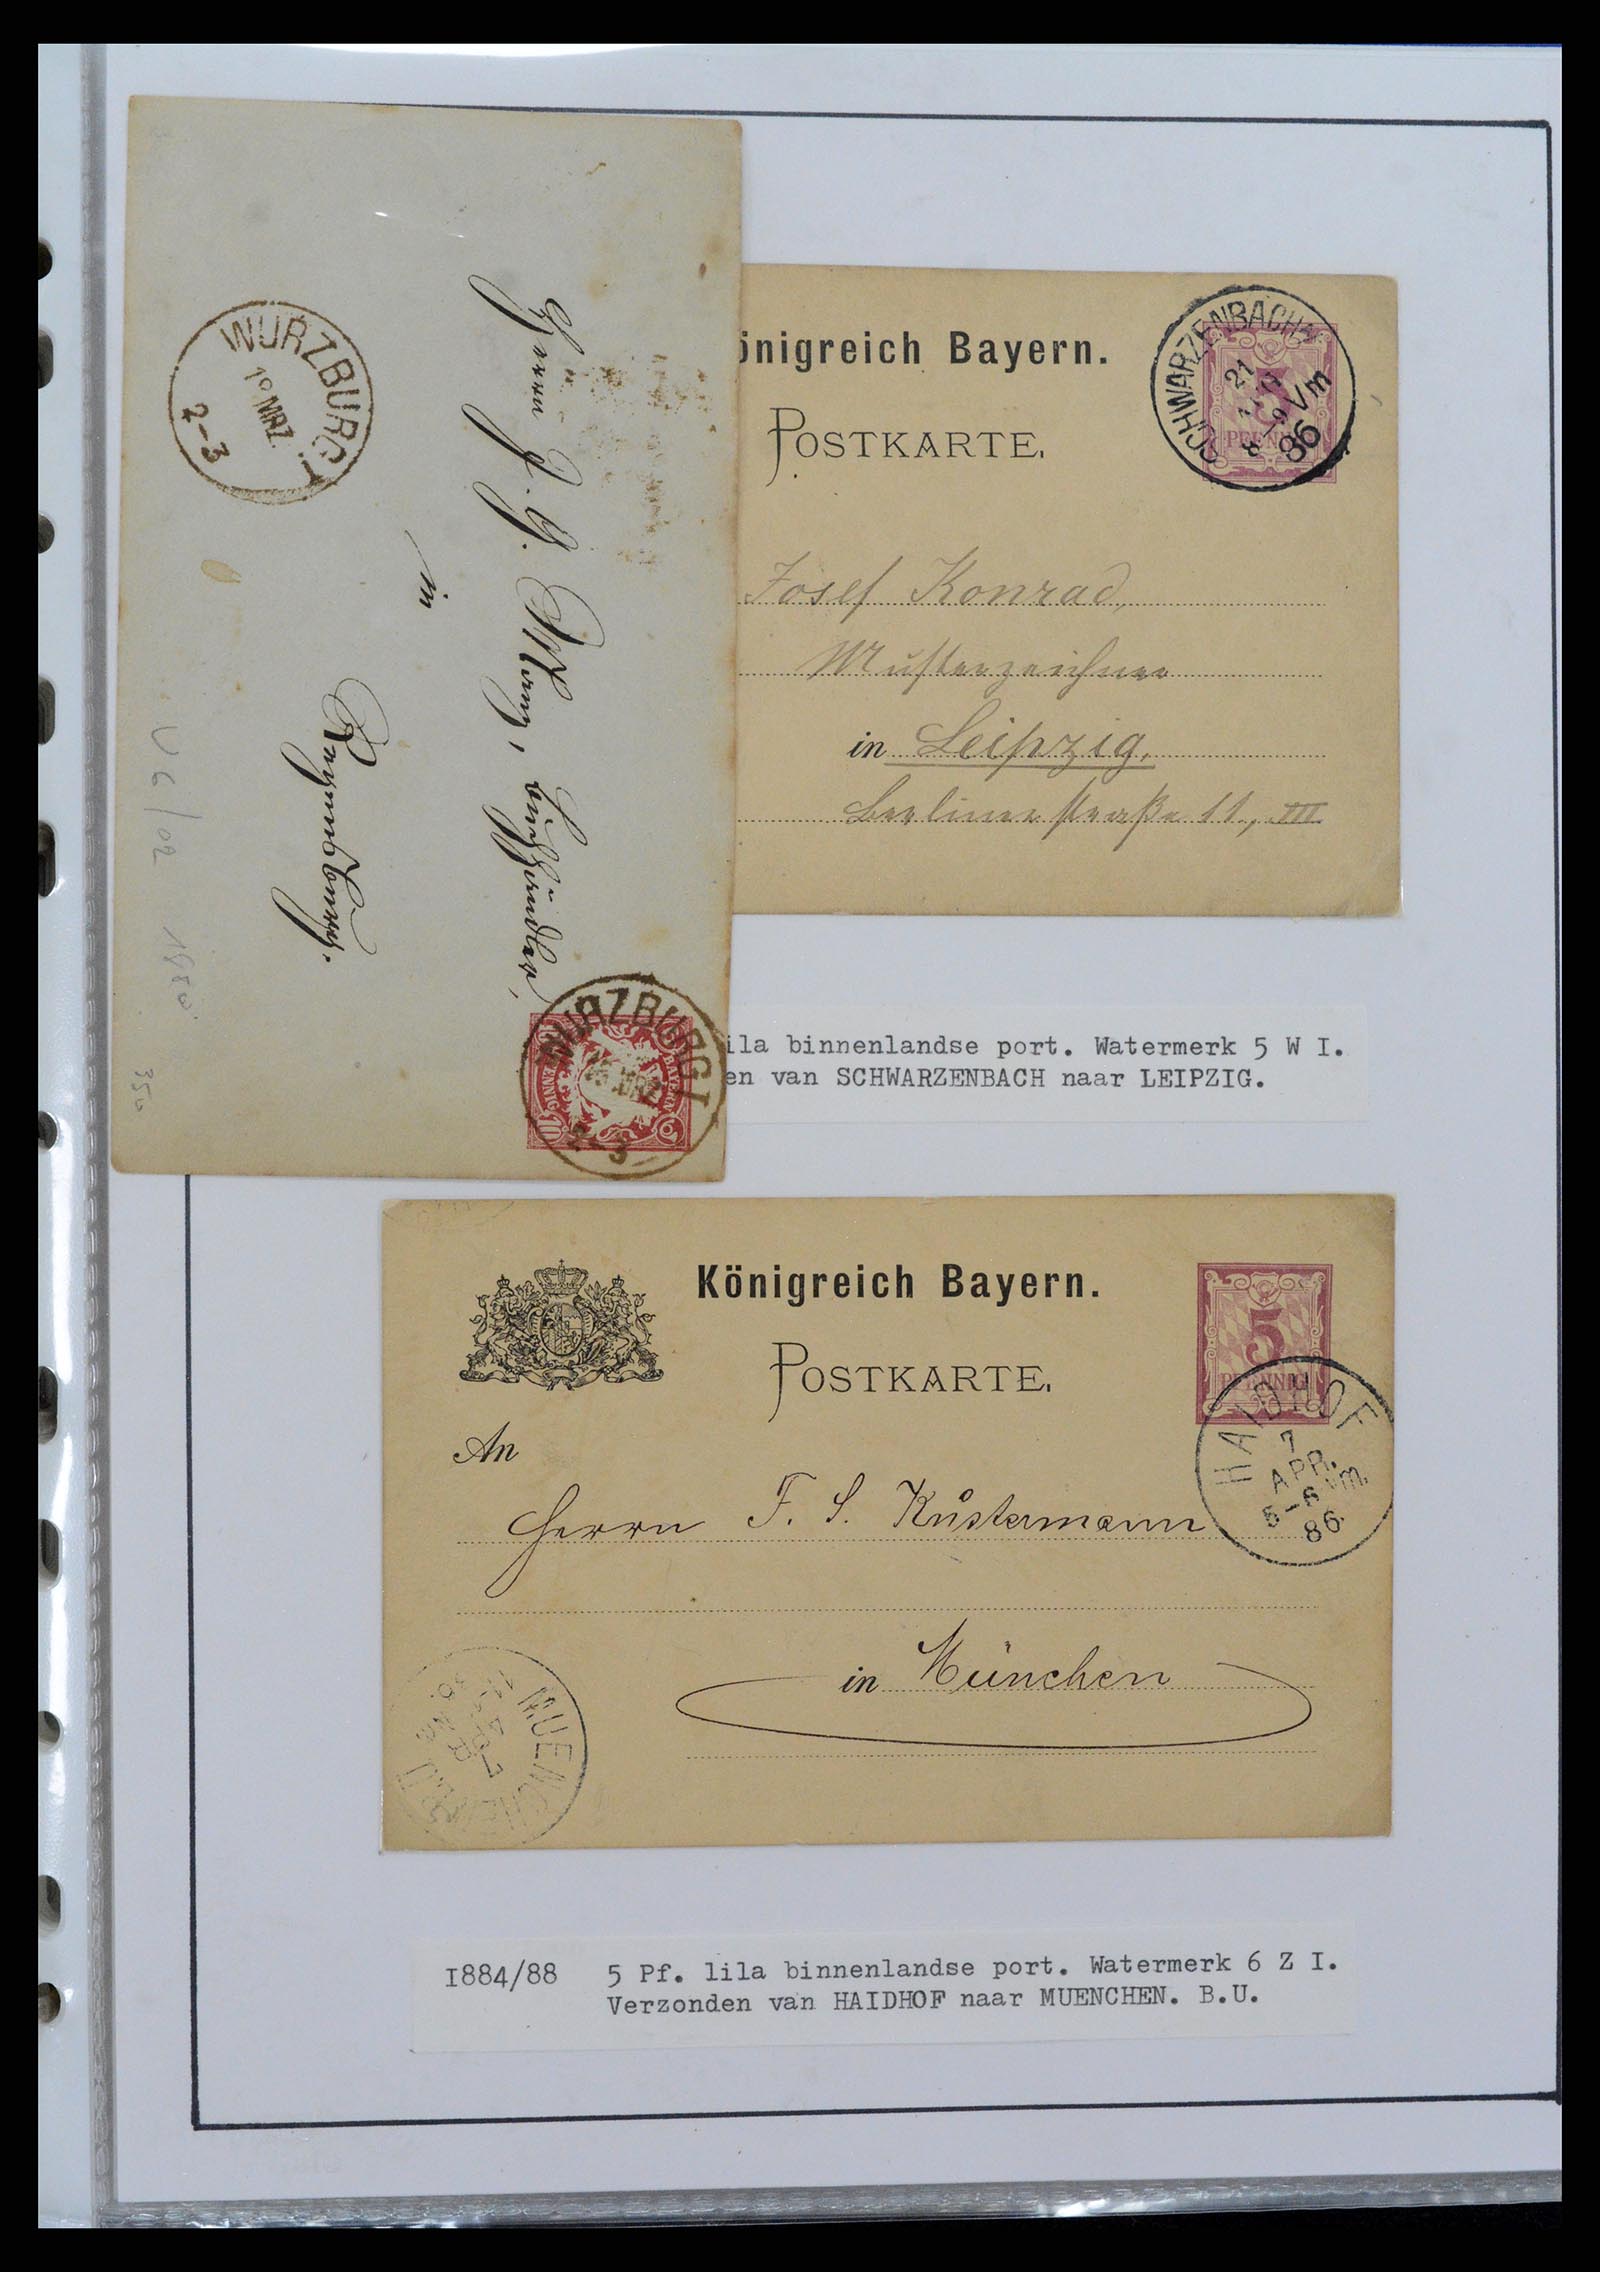 WURZBURG I
10 MRZ
2-3
Herrn J. G.
Buchhändler,
in
U6/02 1880
350
WURZBURG I
MRZ
2-3
BAYERN
10
önigreich Bayern.
POSTKARTE.
SCHWARZENBACH
21
8-9 Vm
86
5
PFENNIG
Josef Konrad,
Musterzeichner
in Leipzig,
Berlinerstraße 11, III
ila binnenlandse port. Watermerk 5 W I.
en van SCHWARZENBACH naar LEIPZIG.
Königreich Bayern.
POSTKARTE.
5
PFENNIG
HAIDHOF
7
APR.
5-6 Vm.
86
An
Herrn F. S. Kustermann
in München
MUENCHEN
I884/88 5 Pf. lila binnenlandse port. Watermerk 6 Z I.
Verzonden van HAIDHOF naar MUENCHEN. B.U.